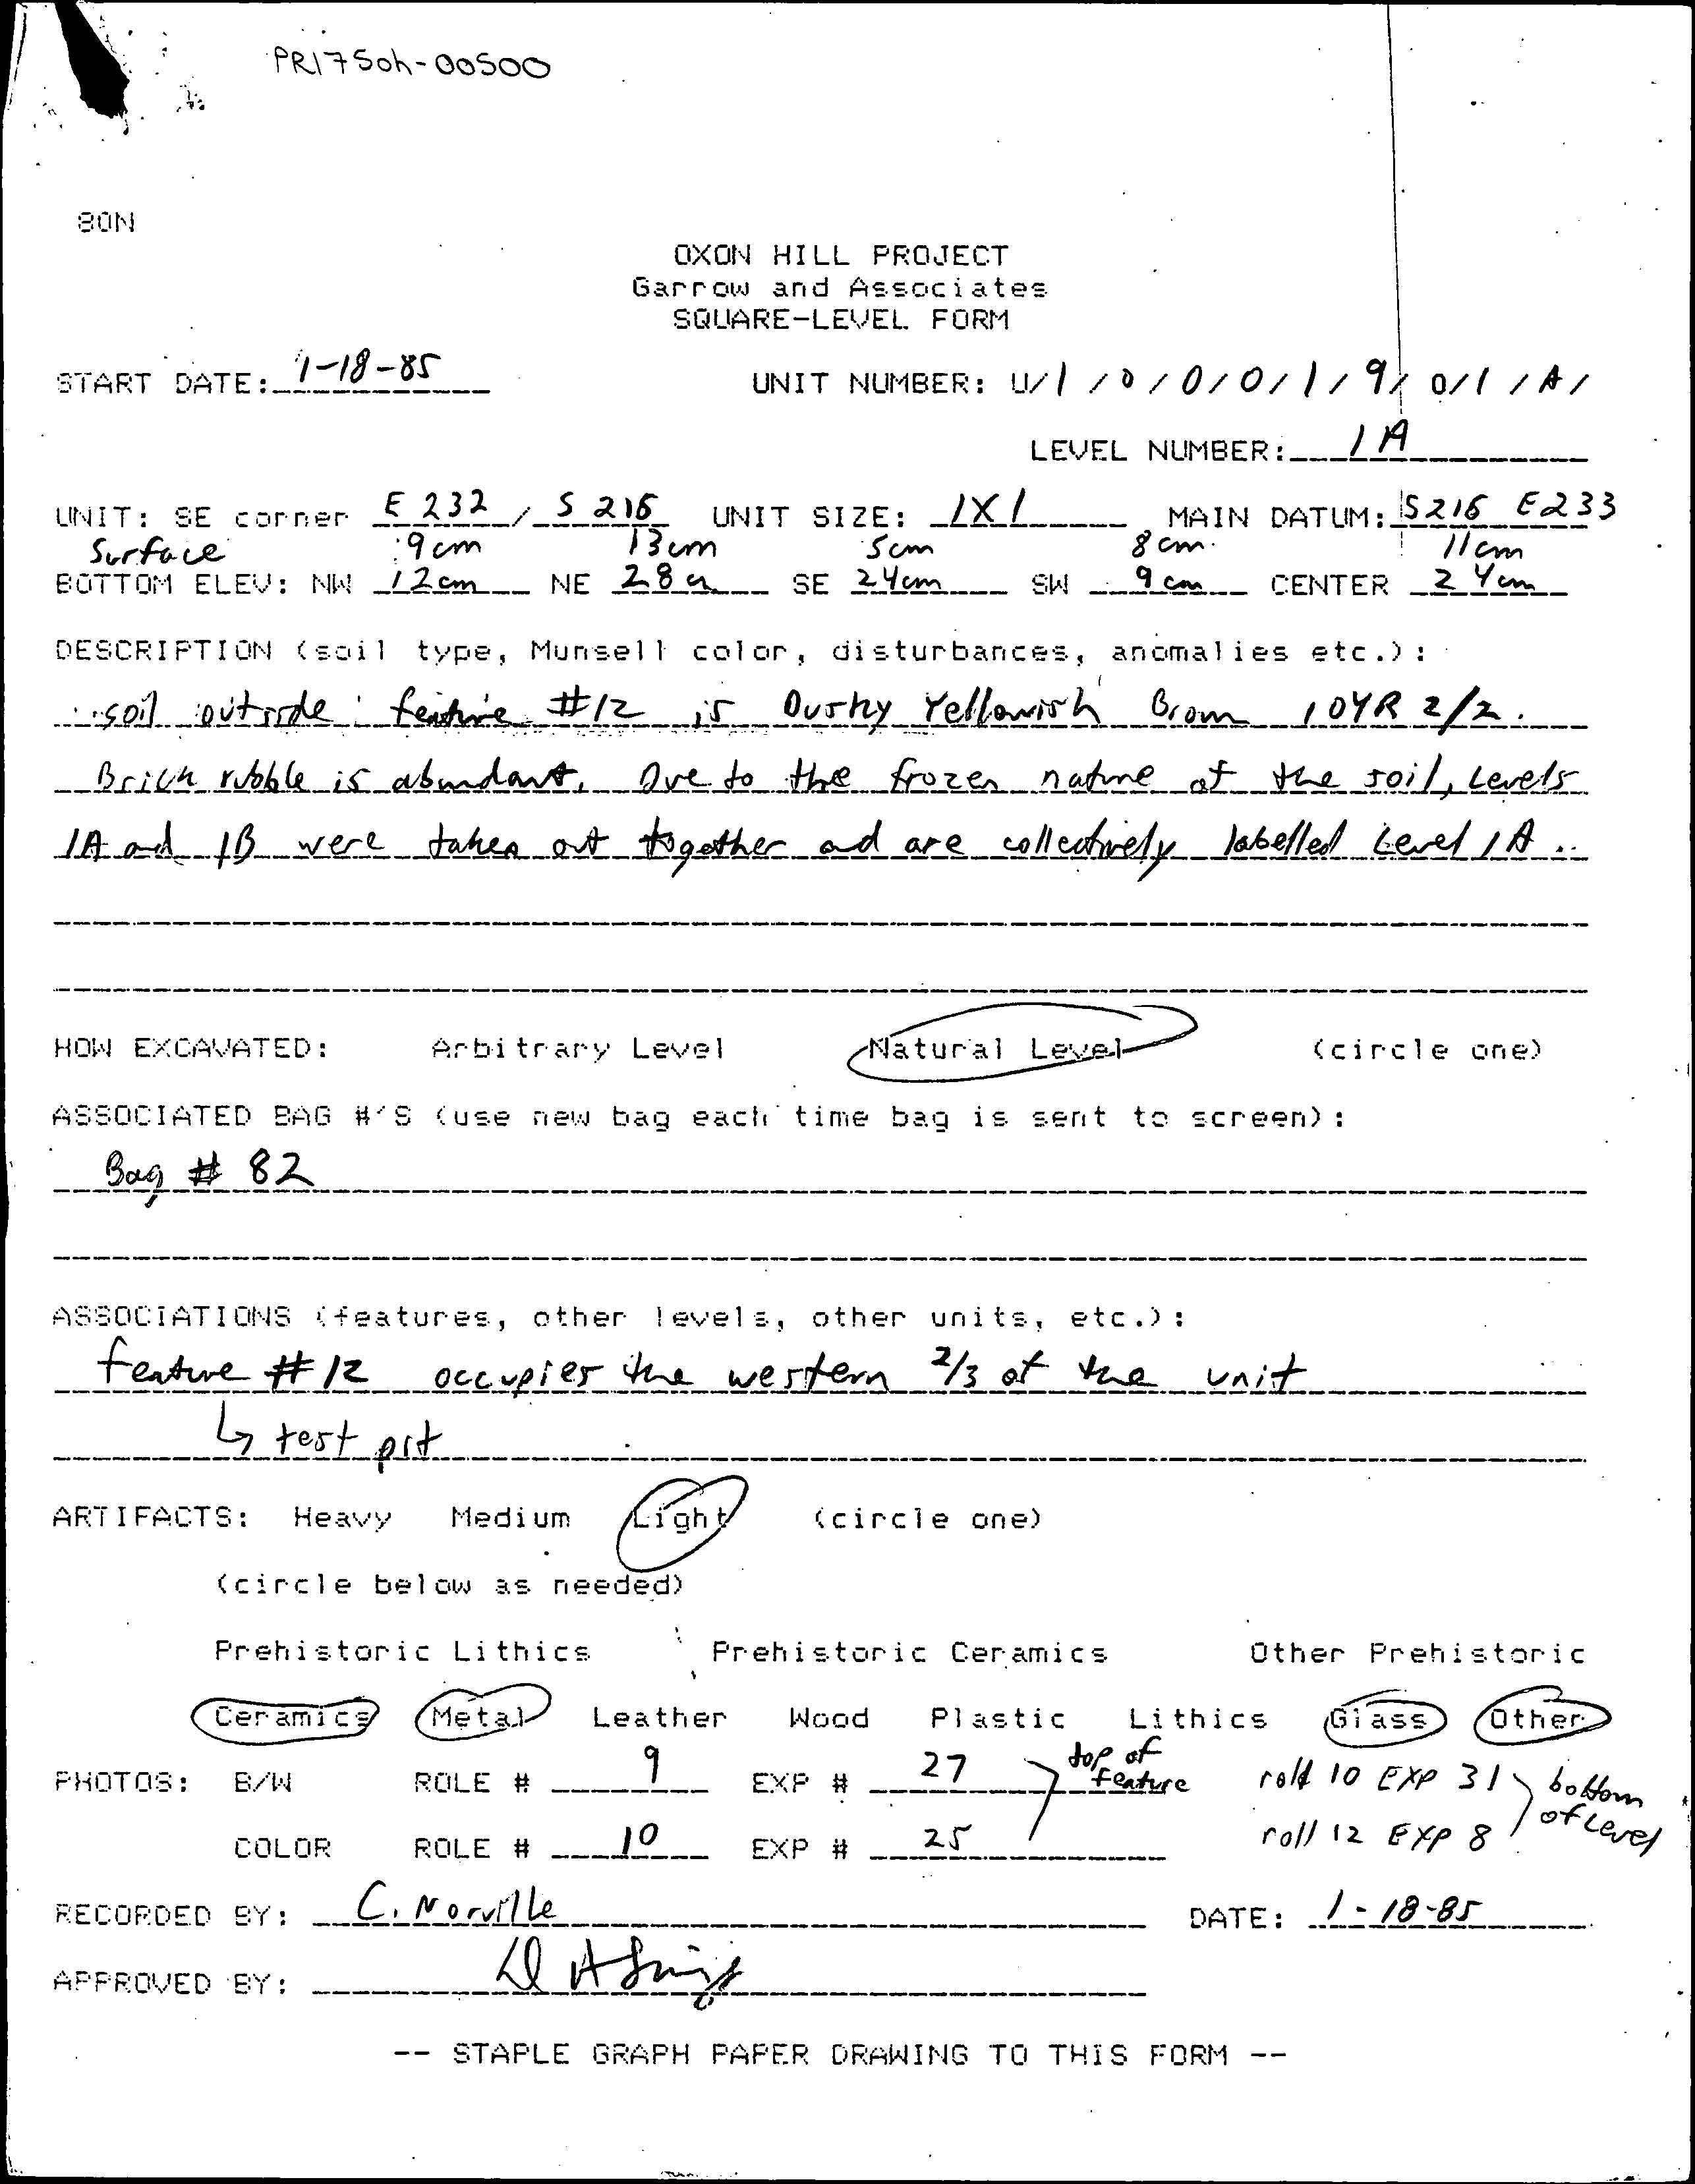 PR175oh-00500
80N
OXON HILL PROJECT
Garrow and Associates
SQUARE-LEVEL FORM
START DATE: 1-18-85 UNIT NUMBER: U/1/0/0/0/1/9/0/1/A/
LEVEL NUMBER: 1A
UNIT: SE corner E 232 / S 216 UNIT SIZE: 1X1 MAIN DATUM: S216 E233
Surface 9cm 13cm 5cm 8cm 11cm
BOTTOM ELEV: NW 12cm NE 28cm SE 24cm SW 9cm CENTER 24cm
DESCRIPTION (soil type, Munsell color, disturbances, anomalies etc.):
soil outside feature #12 is Dusky Yellowish Brown 10YR 2/2.
Brick rubble is abundant. Due to the frozen nature of the soil, Levels
1A and 1B were taken out together and are collectively labelled Level 1A.
HOW EXCAVATED: Arbitrary Level Natural Level (circle one)
ASSOCIATED BAG #'S (use new bag each time bag is sent to screen):
Bag # 82
ASSOCIATIONS (features, other levels, other units, etc.):
feature #12 occupies the western 2/3 of the unit
↳ test pit
ARTIFACTS: Heavy Medium Light (circle one)
(circle below as needed)
Prehistoric Lithics Prehistoric Ceramics Other Prehistoric
Ceramics Metal Leather Wood Plastic Lithics Glass Other
PHOTOS: B/W ROLE # 9 EXP # 27 top of feature roll 10 EXP 31 bottom of Level
COLOR ROLE # 10 EXP # 25 roll 12 EXP 8
RECORDED BY: C. Norville DATE: 1-18-85
APPROVED BY:
-- STAPLE GRAPH PAPER DRAWING TO THIS FORM --